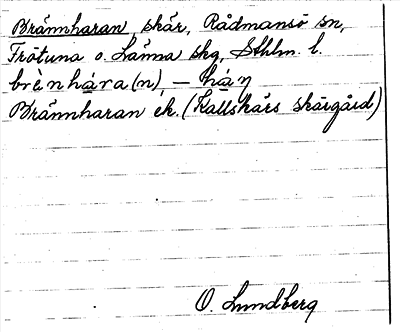 Brännharan, skär, Rådmansö sn,
Frötuna o. Länna skg, Sthlm. l.
brènhára(n), – háŋ
Brännharan ek. (Kallskärs skärgård)
O. Lundberg